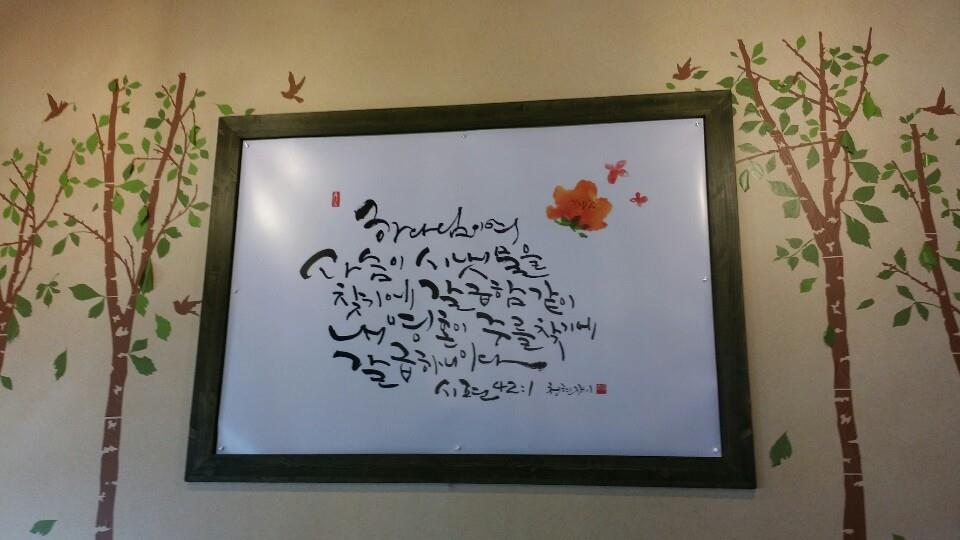 하나님이여
사슴이 시냇물을
찾기에 갈급함 같이
내 영혼이 주를 찾기에
갈급하니이다
시편 42:1